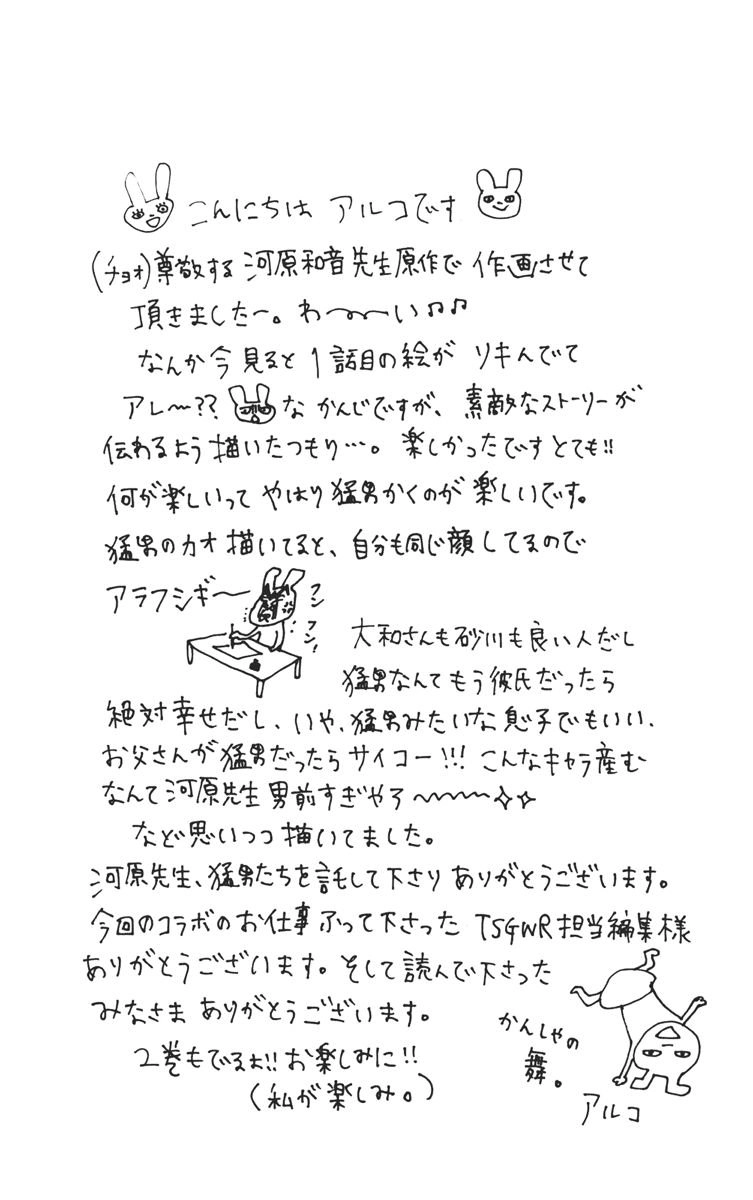 こんにちは アルコです
(チョオ)尊敬する 河原和音先生原作で 作画させて
頂きました〜。わ〜〜〜い♪♪
なんか今見ると 1話目の絵が リキんでて
アレ〜?? な かんじですが、素敵なストーリーが
伝わるよう 描いたつもり…。楽しかったです とても!!
何が楽しいって やはり猛男かくのが 楽しいです。
猛男のカオ描いてると、自分も同じ顔してるので
アラフシギ〜
フン
フン!
大和さんも砂川も良い人だし
猛男なんてもう彼氏だったら
絶対幸せだし、いや、猛男みたいな息子でもいい、
お父さんが猛男だったらサイコー!!! こんなキャラ産む
なんて河原先生男前すぎやろ〜〜〜〜✧✧
など思いつつ描いてました。
河原先生、猛男たちを託して下さり ありがとうございます。
今回のコラボのお仕事ふって下さった TSGWR担当編集様
ありがとうございます。そして読んで下さった
みなさま ありがとうございます。
2巻もでるよ!! お楽しみに!!
(私が楽しみ。)
かんしゃの
舞。
アルコ